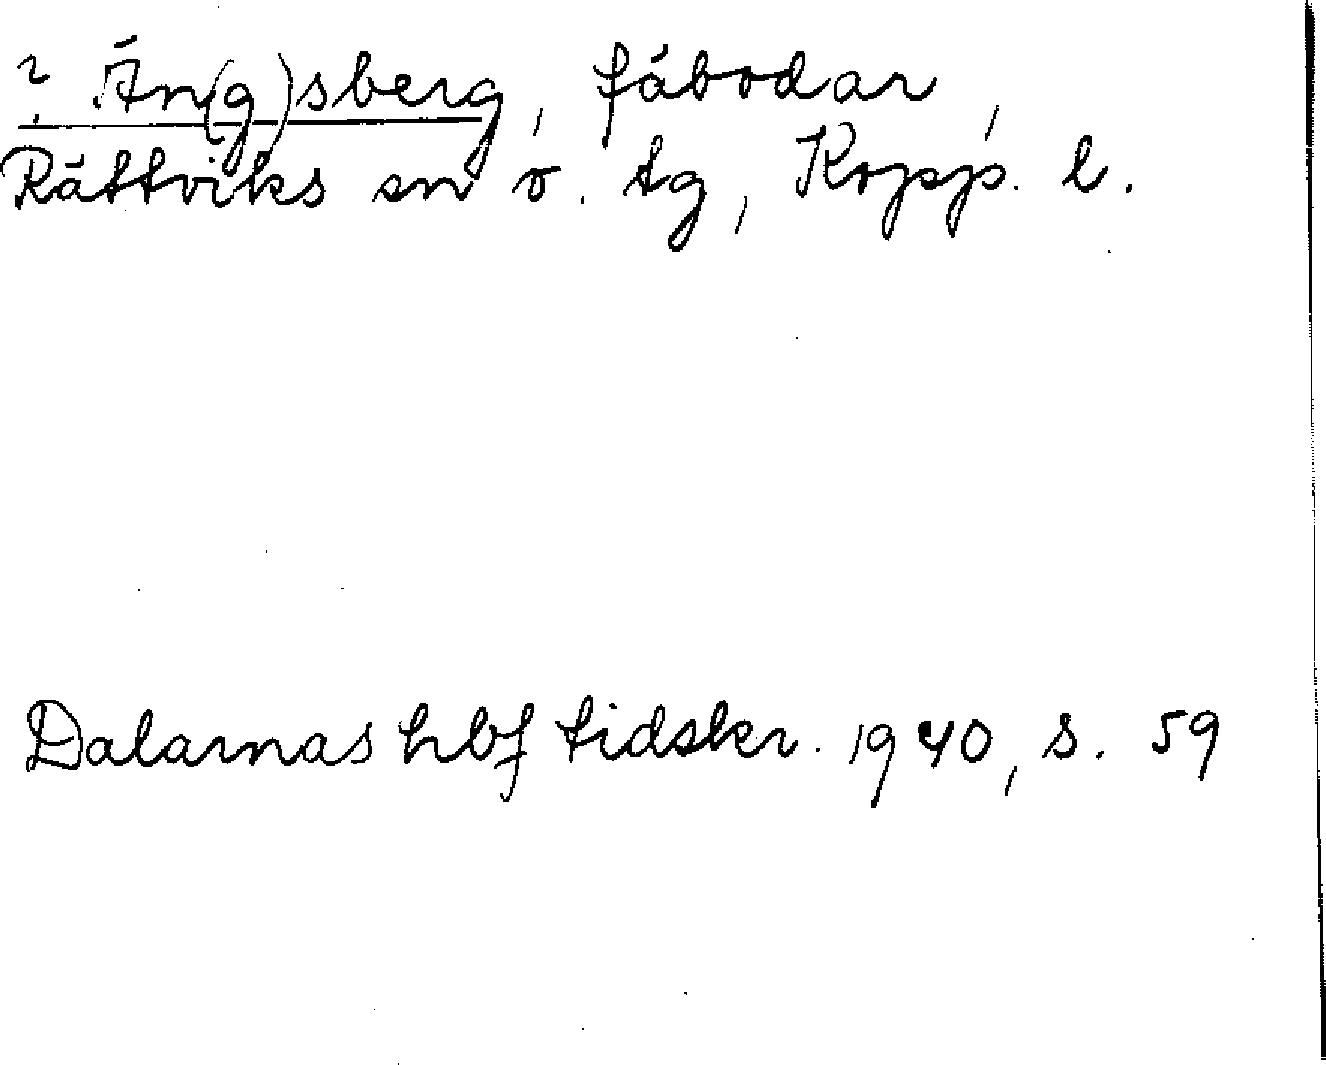 ? Än(g)sberg, fäbodar,
Rättviks sn o. tg, Kopp. l.
Dalarnas hbf tidskr. 1940, s. 59